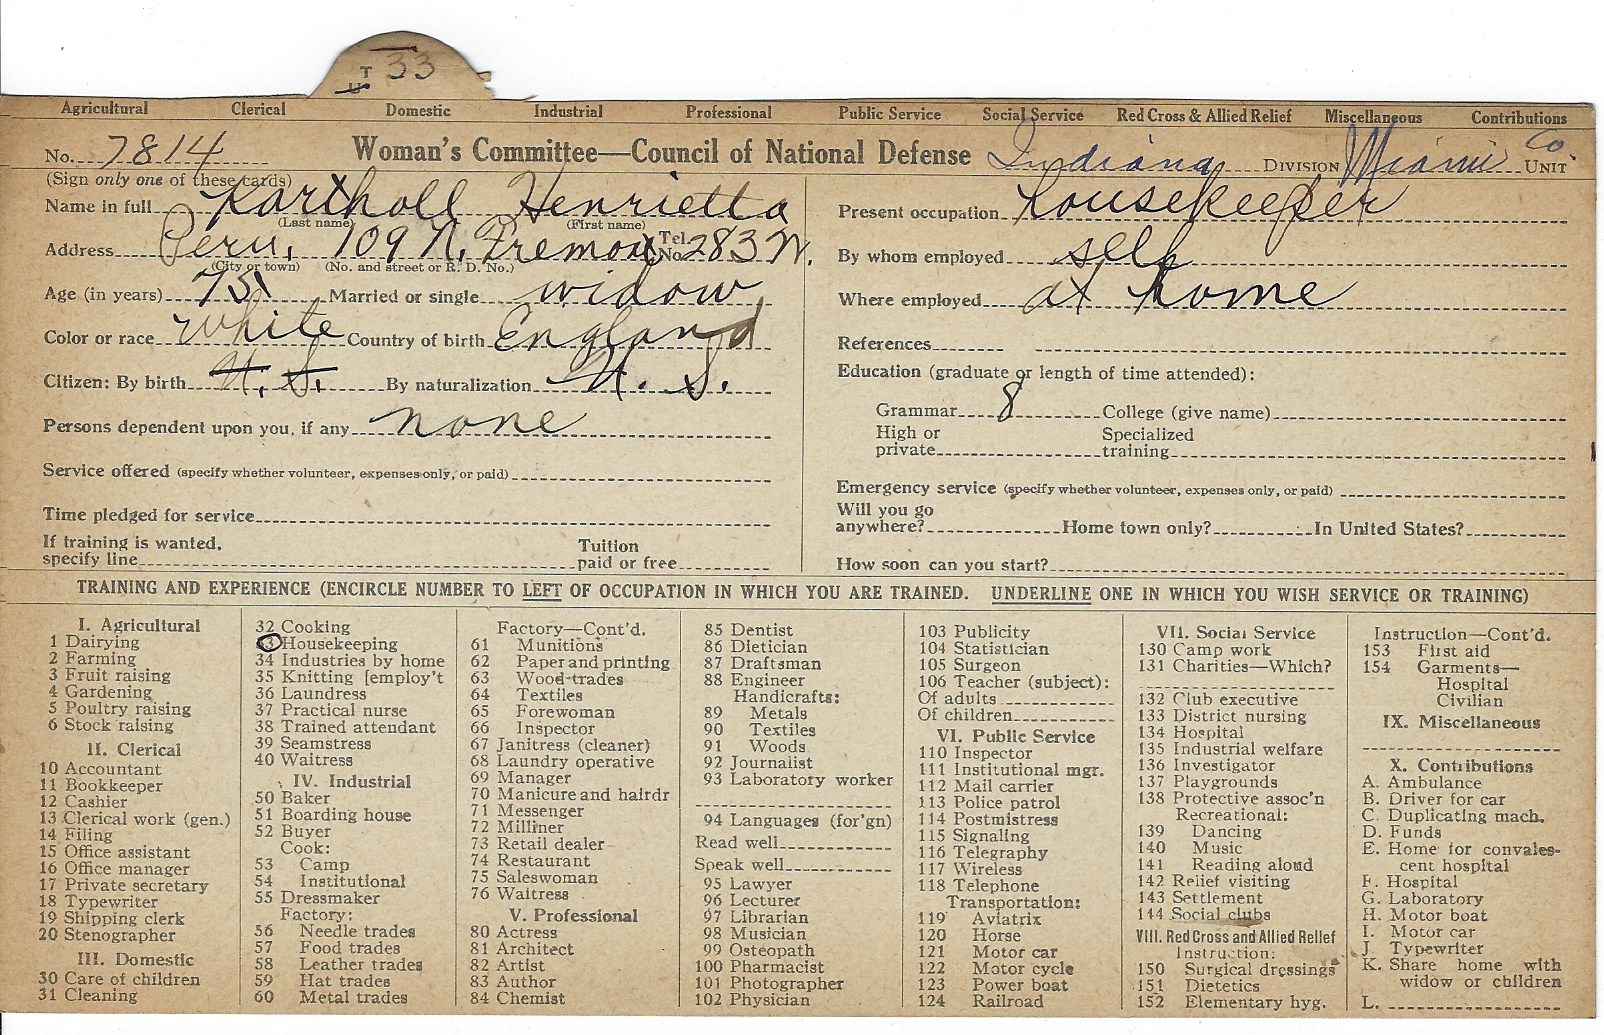 T 33
U
Agricultural Clerical Domestic Industrial Professional Public Service Social Service Red Cross & Allied Relief Miscellaneous Contributions
No. 7814 Woman's Committee—Council of National Defense Indiana DIVISION Miami Co. UNIT
(Sign only one of these cards)
Name in full Karxholl Henrietta
(Last name) (First name)
Address Peru, 109 N. Fremont Tel. No. 283 W.
(City or town) (No. and street or R. D. No.)
Age (in years) 75 Married or single widow
Color or race White Country of birth England
Citizen: By birth U. S. By naturalization U. S.
Persons dependent upon you, if any none
Service offered (specify whether volunteer, expenses only, or paid)
Time pledged for service
If training is wanted, specify line Tuition paid or free
Present occupation housekeeper
By whom employed self
Where employed at home
References
Education (graduate or length of time attended):
Grammar 8 College (give name)
High or private Specialized training
Emergency service (specify whether volunteer, expenses only, or paid)
Will you go anywhere? Home town only? In United States?
How soon can you start?
TRAINING AND EXPERIENCE (ENCIRCLE NUMBER TO LEFT OF OCCUPATION IN WHICH YOU ARE TRAINED. UNDERLINE ONE IN WHICH YOU WISH SERVICE OR TRAINING)
I. Agricultural
1 Dairying
2 Farming
3 Fruit raising
4 Gardening
5 Poultry raising
6 Stock raising
II. Clerical
10 Accountant
11 Bookkeeper
12 Cashier
13 Clerical work (gen.)
14 Filing
15 Office assistant
16 Office manager
17 Private secretary
18 Typewriter
19 Shipping clerk
20 Stenographer
III. Domestic
30 Care of children
31 Cleaning
32 Cooking
33 Housekeeping
34 Industries by home
35 Knitting [employ't
36 Laundress
37 Practical nurse
38 Trained attendant
39 Seamstress
40 Waitress
IV. Industrial
50 Baker
51 Boarding house
52 Buyer
Cook:
53 Camp
54 Institutional
55 Dressmaker
Factory:
56 Needle trades
57 Food trades
58 Leather trades
59 Hat trades
60 Metal trades
Factory—Cont'd.
61 Munitions
62 Paper and printing
63 Wood-trades
64 Textiles
65 Forewoman
66 Inspector
67 Janitress (cleaner)
68 Laundry operative
69 Manager
70 Manicure and hairdr
71 Messenger
72 Milliner
73 Retail dealer
74 Restaurant
75 Saleswoman
76 Waitress
V. Professional
80 Actress
81 Architect
82 Artist
83 Author
84 Chemist
85 Dentist
86 Dietician
87 Draftsman
88 Engineer
Handicrafts:
89 Metals
90 Textiles
91 Woods
92 Journalist
93 Laboratory worker
94 Languages (for'gn)
Read well
Speak well
95 Lawyer
96 Lecturer
97 Librarian
98 Musician
99 Osteopath
100 Pharmacist
101 Photographer
102 Physician
103 Publicity
104 Statistician
105 Surgeon
106 Teacher (subject):
Of adults
Of children
VI. Public Service
110 Inspector
111 Institutional mgr.
112 Mail carrier
113 Police patrol
114 Postmistress
115 Signaling
116 Telegraphy
117 Wireless
118 Telephone
Transportation:
119 Aviatrix
120 Horse
121 Motor car
122 Motor cycle
123 Power boat
124 Railroad
VII. Social Service
130 Camp work
131 Charities—Which?
132 Club executive
133 District nursing
134 Hospital
135 Industrial welfare
136 Investigator
137 Playgrounds
138 Protective assoc'n
Recreational:
139 Dancing
140 Music
141 Reading aloud
142 Relief visiting
143 Settlement
144 Social clubs
VIII. Red Cross and Allied Relief
Instruction:
150 Surgical dressings
151 Dietetics
152 Elementary hyg.
Instruction—Cont'd.
153 First aid
154 Garments—
Hospital
Civilian
IX. Miscellaneous
X. Contributions
A. Ambulance
B. Driver for car
C. Duplicating mach.
D. Funds
E. Home for convales-
cent hospital
F. Hospital
G. Laboratory
H. Motor boat
I. Motor car
J. Typewriter
K. Share home with
widow or children
L.